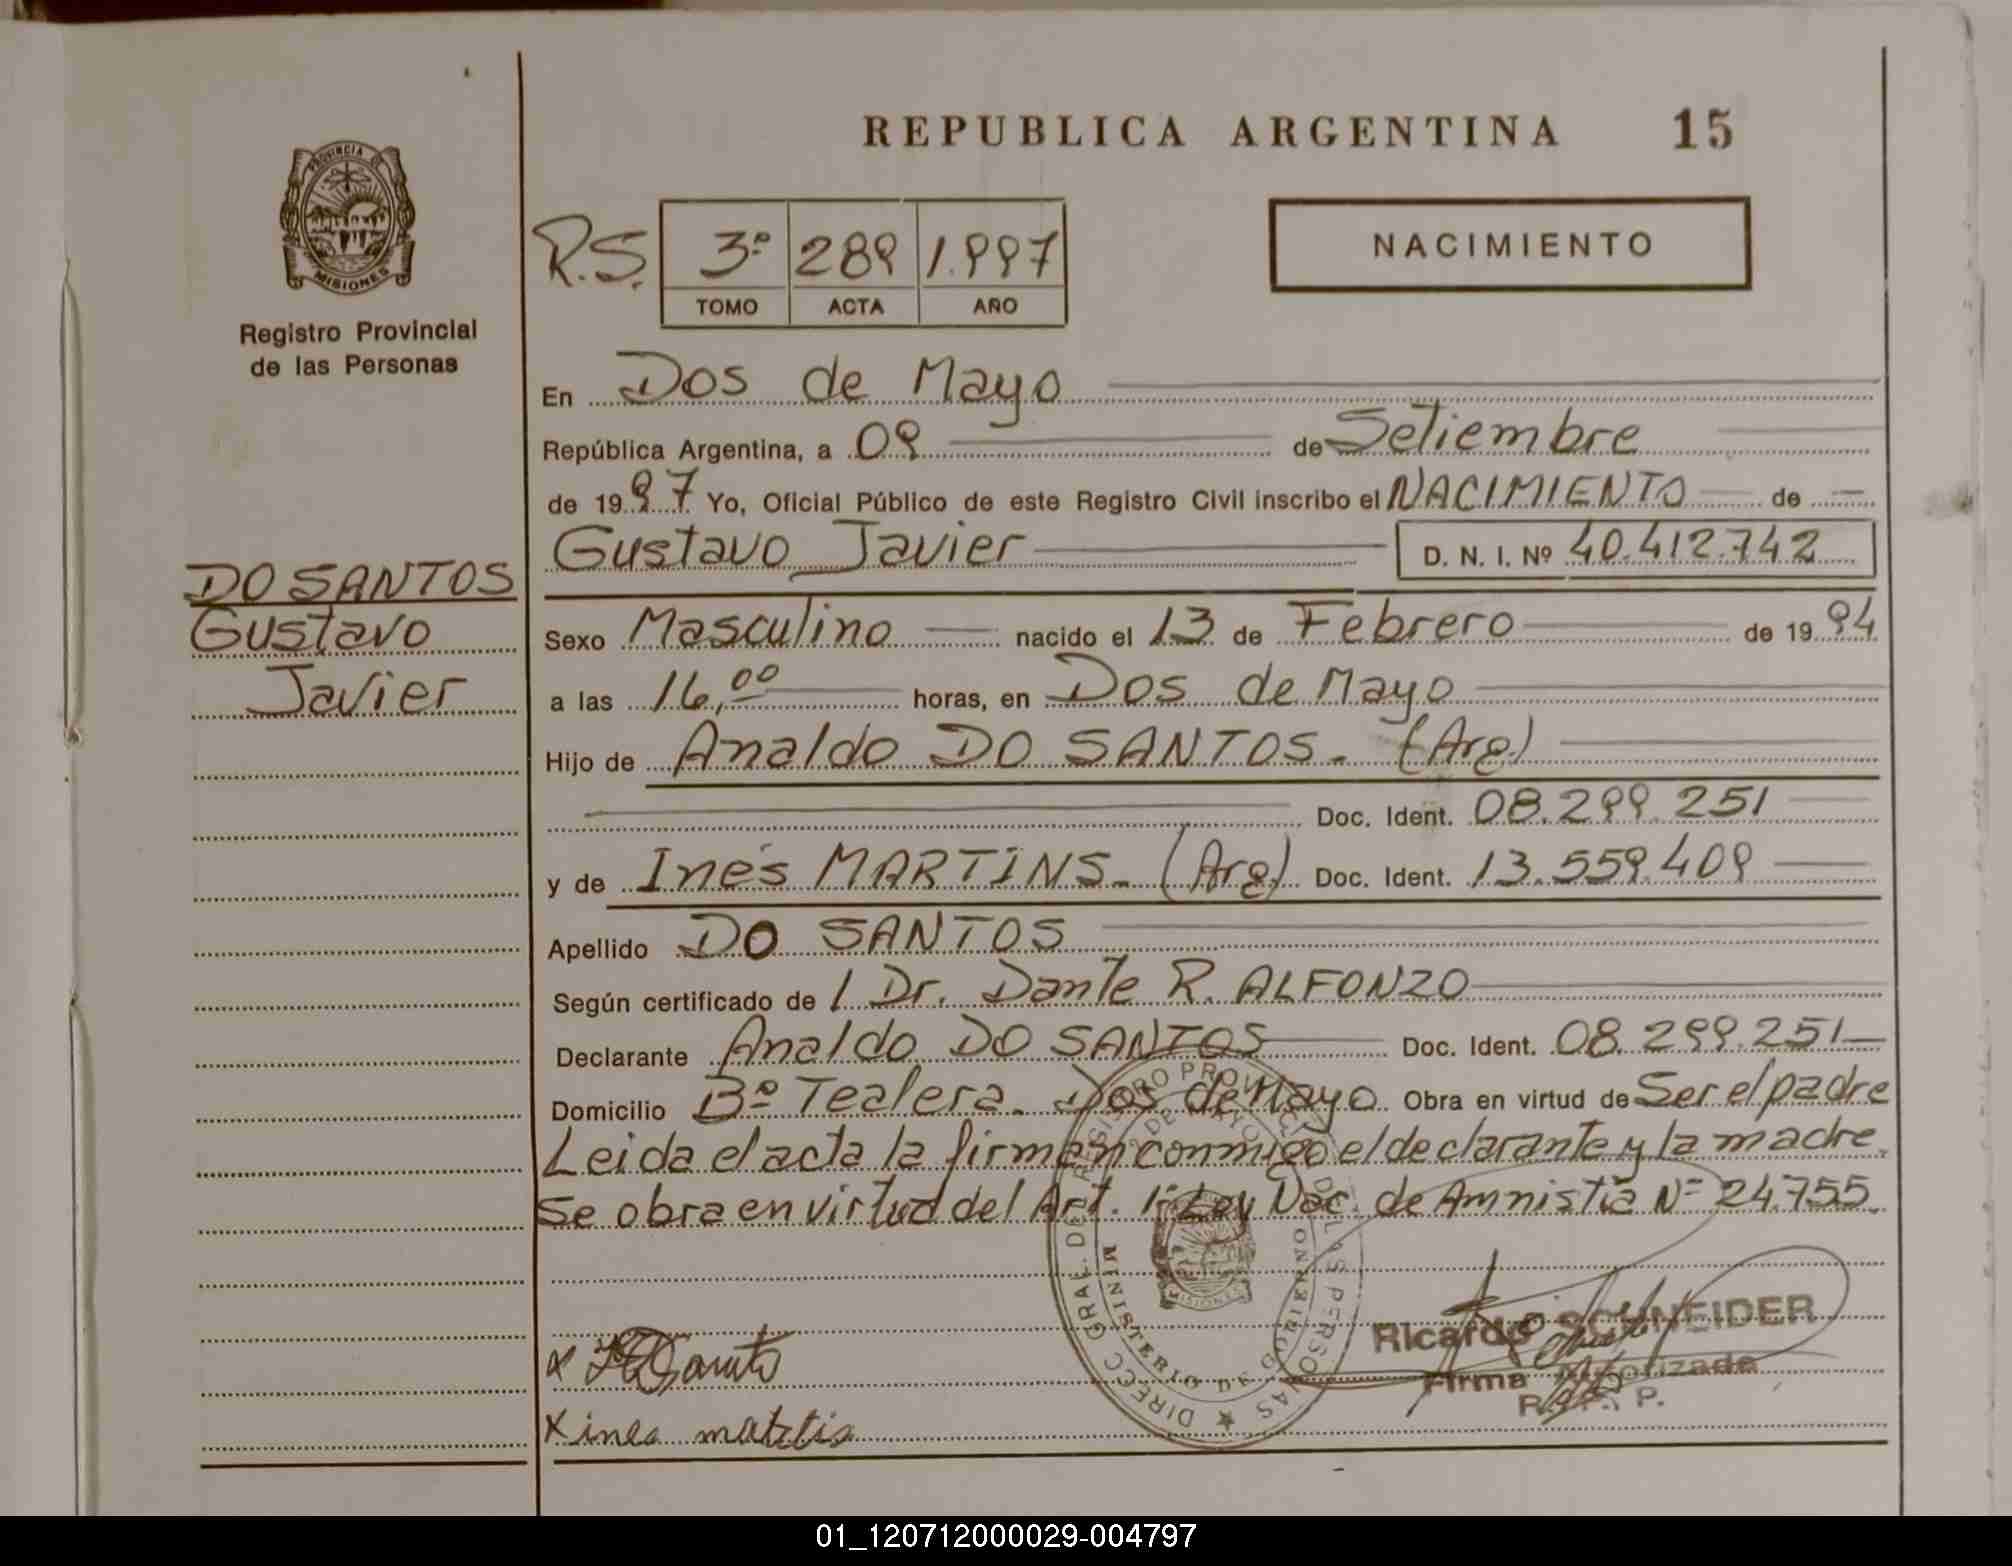 REPUBLICA ARGENTINA 15
PROVINCIA DE
MISIONES
Registro Provincial
de las Personas
R.S. 3º 289 1.997
TOMO ACTA AÑO
NACIMIENTO
En Dos de Mayo
República Argentina, a 09 de Setiembre
de 1997 Yo, Oficial Público de este Registro Civil inscribo el NACIMIENTO de
Gustavo Javier D. N. I. Nº 40.412.742
DO SANTOS
Gustavo
Javier
Sexo Masculino nacido el 13 de Febrero de 1994
a las 16,00 horas, en Dos de Mayo
Hijo de Analdo DO SANTOS. (Arg.)
Doc. Ident. 08.299.251
y de Inés MARTINS. (Arg.) Doc. Ident. 13.559.409
Apellido DO SANTOS
Según certificado de / Dr. Dante R. ALFONZO
Declarante Analdo DO SANTOS Doc. Ident. 08.299.251
Domicilio Bº Tealera. Dos de Mayo Obra en virtud de Ser el padre
Leida el acta la firman conmigo el declarante y la madre.
Se obra en virtud del Art. 1º Ley Nac. de Amnistía Nº 24.755.
DIRECC. GRAL. DEL REGISTRO PROVINCIAL DE LAS PERSONAS
MINISTERIO DE GOBIERNO
2 DE MAYO
MISIONES
Ricardo SCHNEIDER
Firma Autorizada
R. P. P.
x Santo
x ines
01_120712000029-004797